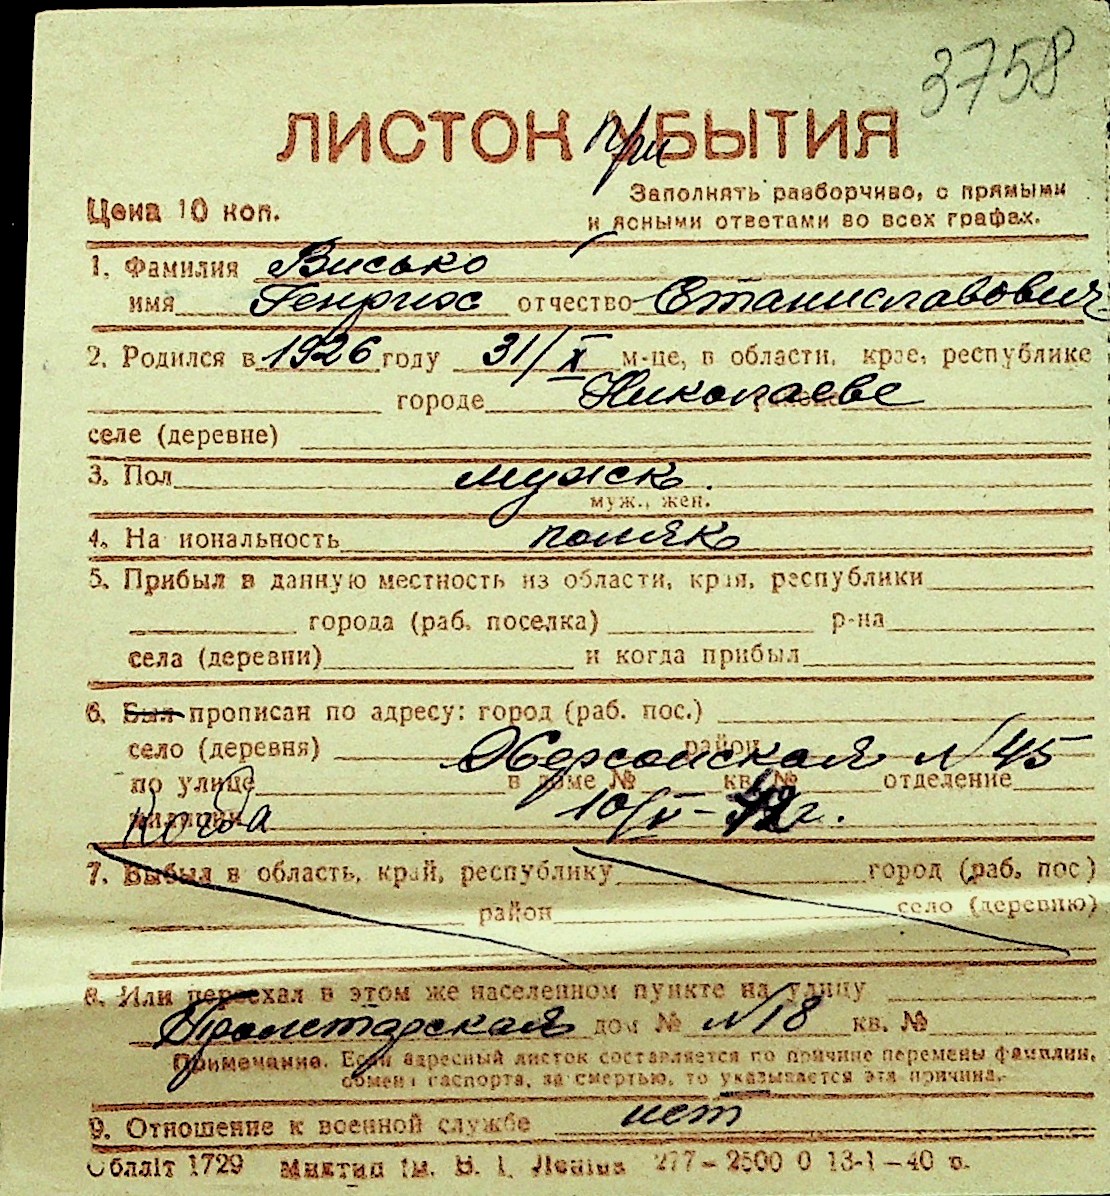 3758
ЛИСТОК УБЫТИЯ
при
Цена 10 коп.
Заполнять разборчиво, с прямыми
и ясными ответами во всех графах.
1. Фамилия Висько
имя Генрих отчество Станиславович
2. Родился в 1926 году 31/X м-це, в области, крае, республике
городе Николаеве
селе (деревне)
3. Пол мужск.
муж., жен.
4. На иональность поляк
5. Прибыл в данную местность из области, края, республики
города (раб. поселка) р-на
села (деревни) и когда прибыл
6. Был прописан по адресу: город (раб. пос.)
село (деревня) район Херсонская N 45
по улице в доме № кв. № отделение
милиции Когда 10/V-42 г.
7. Выбыл в область, край, республику город (раб, пос)
район село (деревню)
8. Или переехал в этом же населенном пункте на улицу
Пролетарская дом № N 18 кв. №
Примечание. Если адресный листок составляется по причине перемены фамилии,
обмена паспорта, за смертью, то указывается эта причина.
9. Отношение к военной службе нет
Облліт 1729 Миктип ім. В. І. Леніна 277-2500 0 13-1-40 р.